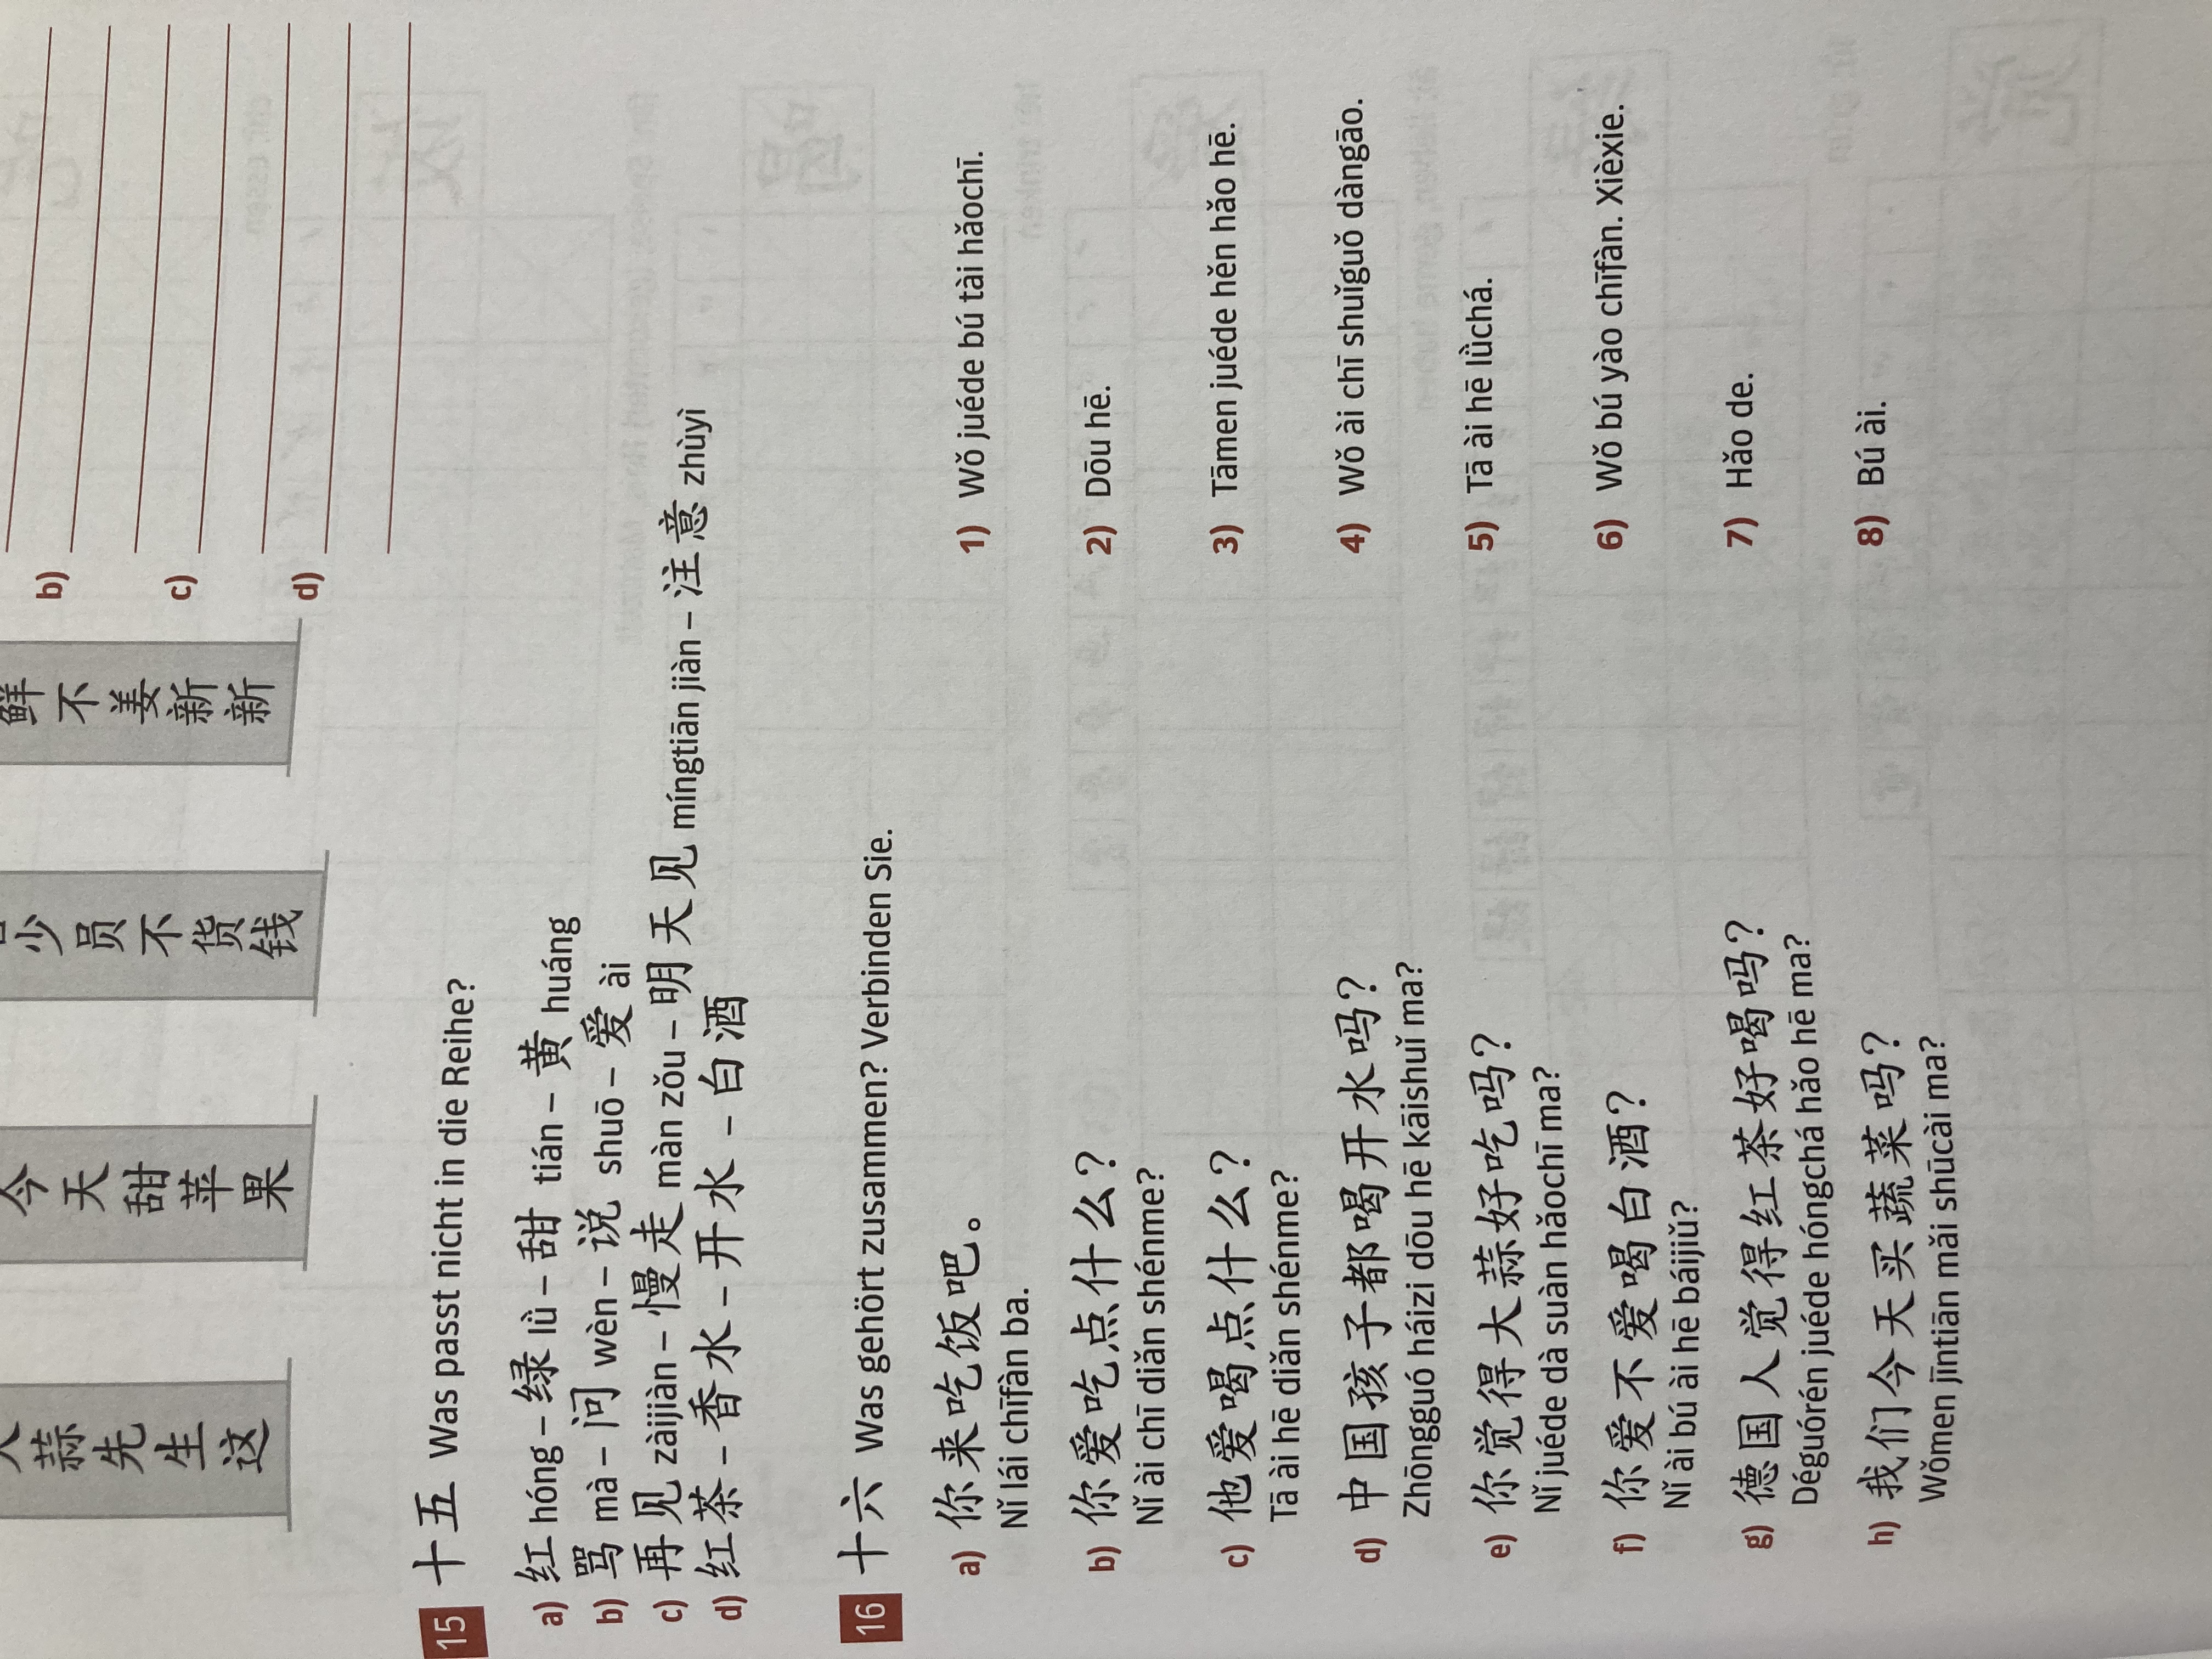 蒜
先
生
这
今
天
甜
苹
果
少
员
不
货
钱
鲜
不
姜
新
新
b)
c)
d)
15 十五 Was passt nicht in die Reihe?
a) 红 hóng – 绿 lǜ – 甜 tián – 黄 huáng
b) 骂 mà – 问 wèn – 说 shuō – 爱 ài
c) 再见 zàijiàn – 慢走 màn zǒu – 明天见 míngtiān jiàn – 注意 zhùyì
d) 红茶 – 香水 – 开水 – 白酒
16 十六 Was gehört zusammen? Verbinden Sie.
a) 你来吃饭吧。
Nǐ lái chīfàn ba.
b) 你爱吃点什么？
Nǐ ài chī diǎn shénme?
c) 他爱喝点什么？
Tā ài hē diǎn shénme?
d) 中国孩子都喝开水吗？
Zhōngguó háizi dōu hē kāishuǐ ma?
e) 你觉得大蒜好吃吗？
Nǐ juéde dà suàn hǎochī ma?
f) 你爱不爱喝白酒？
Nǐ ài bú ài hē báijiǔ?
g) 德国人觉得红茶好喝吗？
Déguórén juéde hóngchá hǎo hē ma?
h) 我们今天买蔬菜吗？
Wǒmen jīntiān mǎi shūcài ma?
1) Wǒ juéde bú tài hǎochī.
2) Dōu hē.
3) Tāmen juéde hěn hǎo hē.
4) Wǒ ài chī shuǐguǒ dàngāo.
5) Tā ài hē lǜchá.
6) Wǒ bú yào chīfàn. Xièxie.
7) Hǎo de.
8) Bú ài.